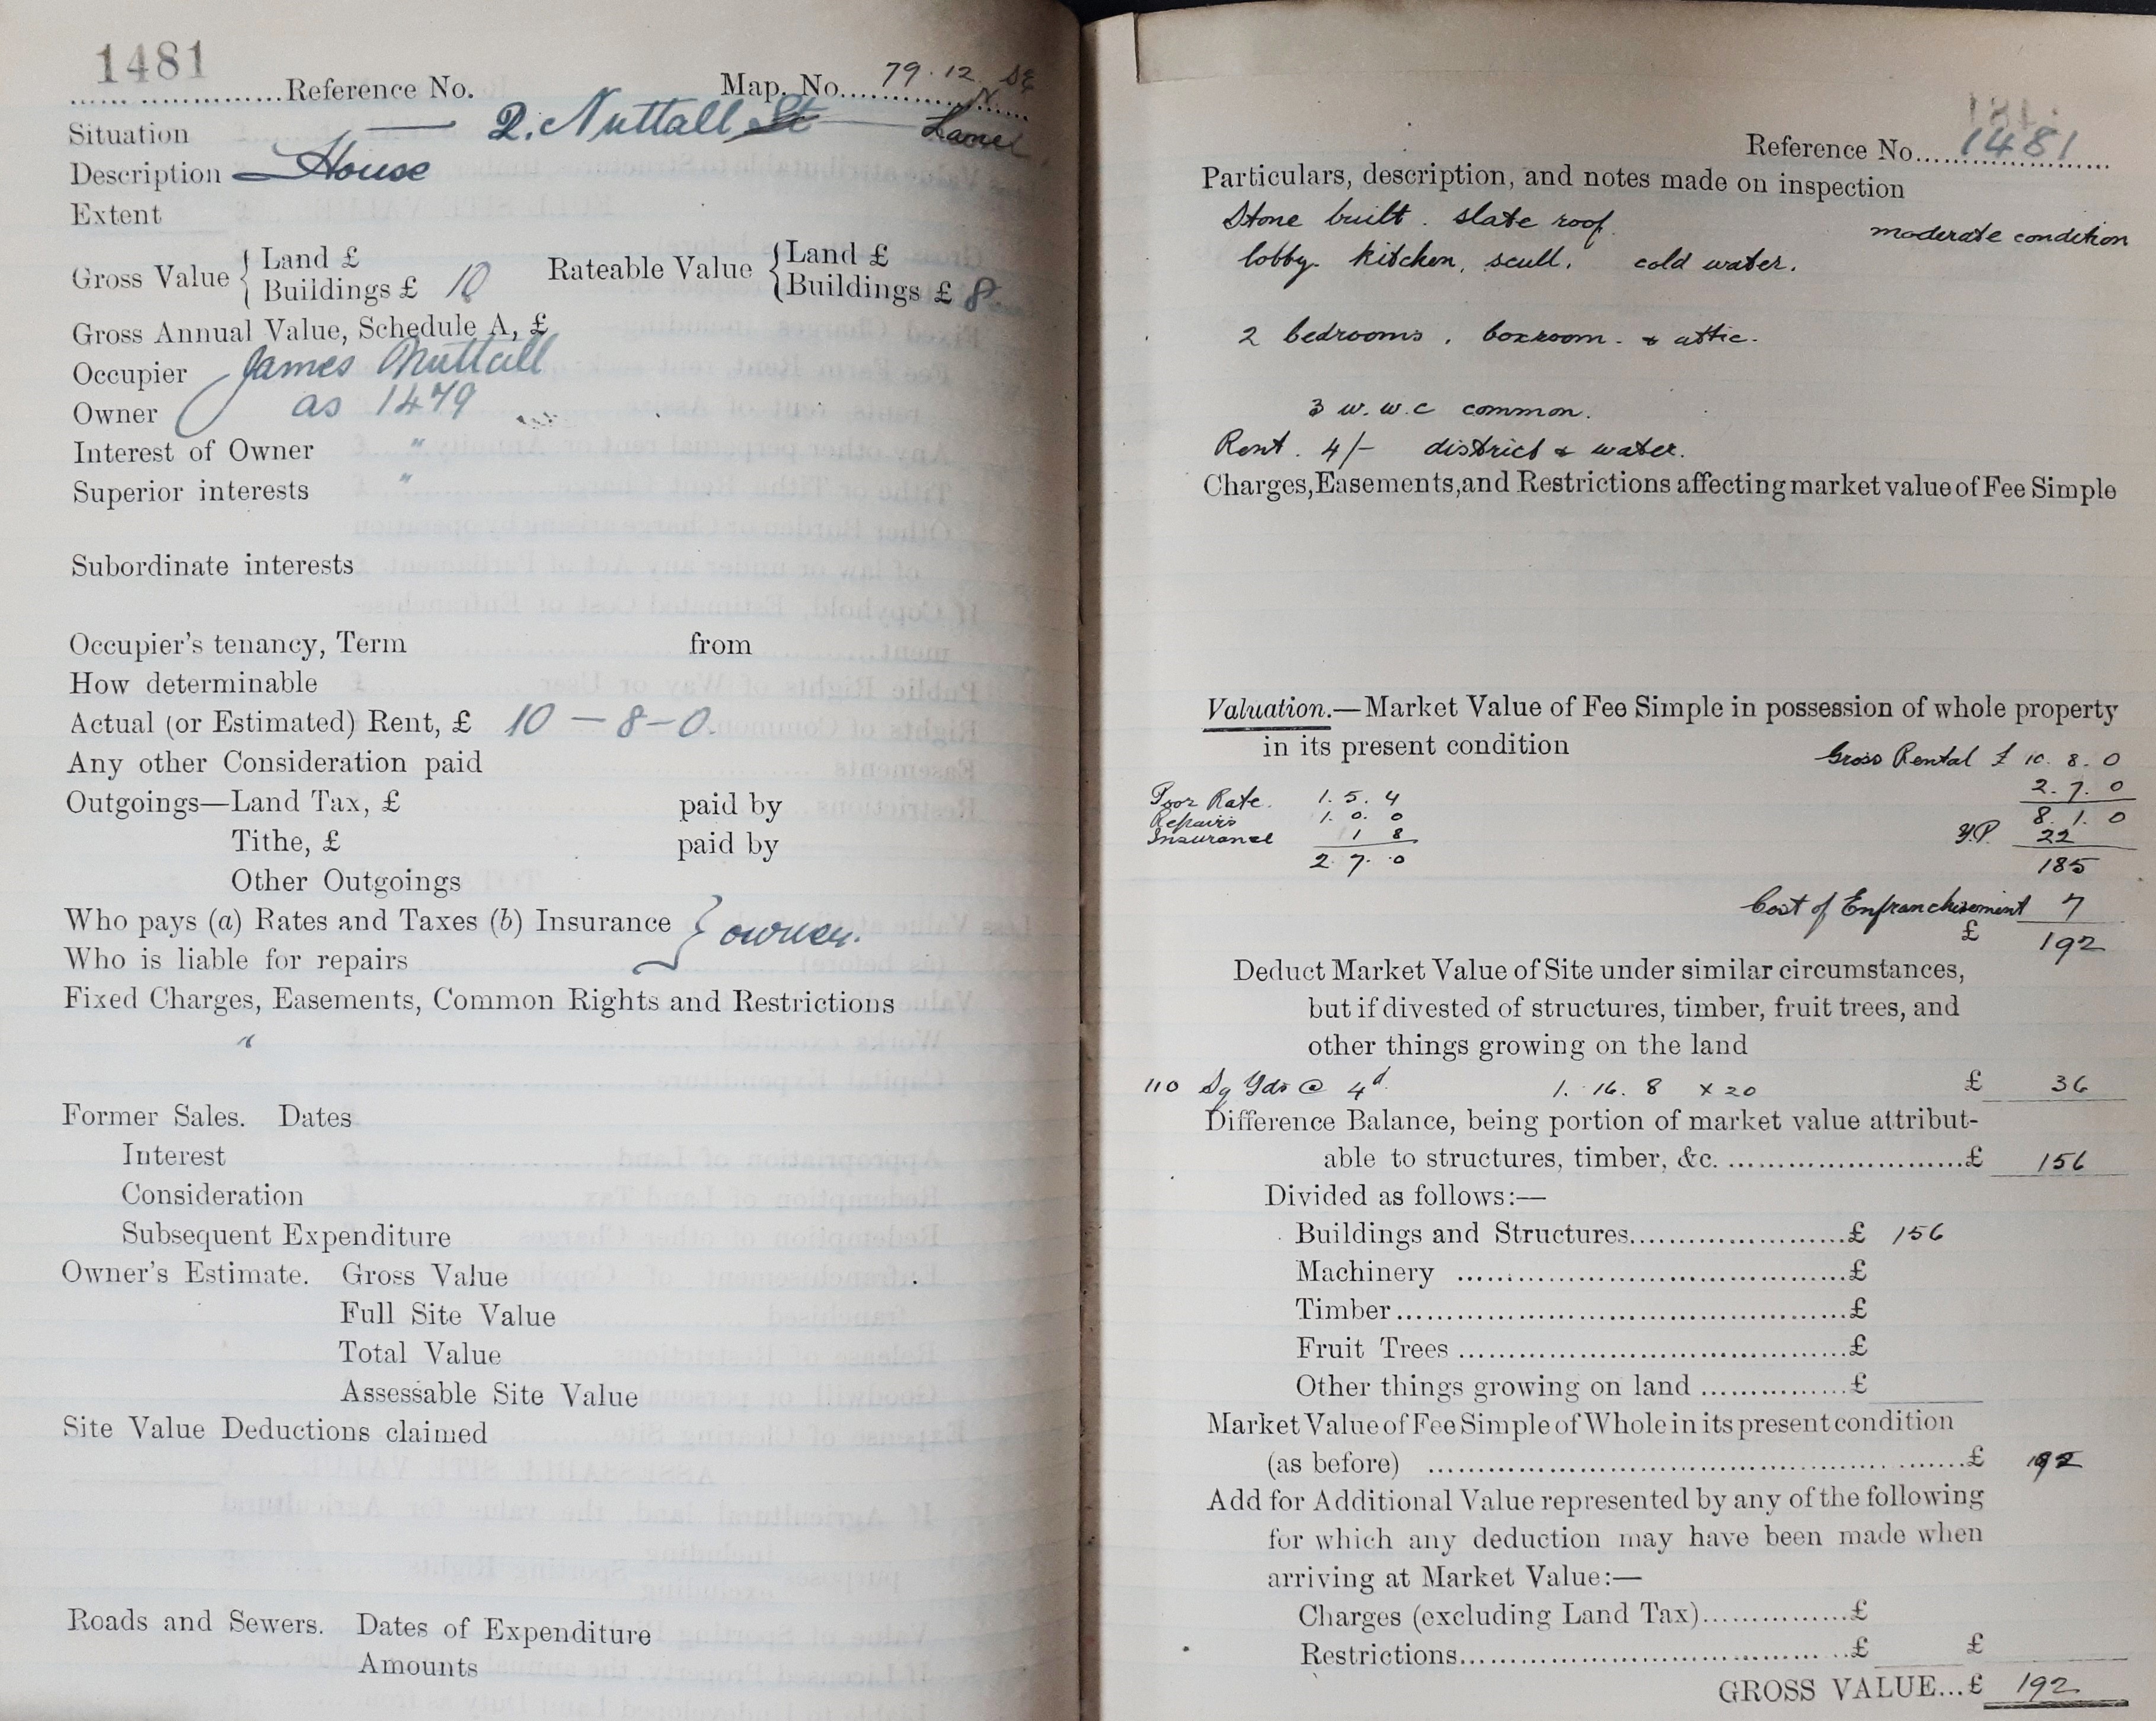 1481
Reference No. Map. No. 79.12 SE
Situation — 2. Nuttall St — Lane
Description House
Extent
Gross Value { Land £
Buildings £ 10
Rateable Value { Land £
Buildings £ 8.
Gross Annual Value, Schedule A, £
Occupier James Nuttall
Owner as 1479
Interest of Owner "
Superior interests "
Subordinate interests
Occupier's tenancy, Term from
How determinable
Actual (or Estimated) Rent, £ 10 — 8 — 0.
Any other Consideration paid
Outgoings—Land Tax, £ paid by
Tithe, £ paid by
Other Outgoings
Who pays (a) Rates and Taxes (b) Insurance } owner.
Who is liable for repairs
Fixed Charges, Easements, Common Rights and Restrictions
"
Former Sales. Dates
Interest
Consideration
Subsequent Expenditure
Owner's Estimate. Gross Value
Full Site Value
Total Value
Assessable Site Value
Site Value Deductions claimed
Roads and Sewers. Dates of Expenditure
Amounts
Reference No. 1481
Particulars, description, and notes made on inspection
Stone built. slate roof. moderate condition
lobby. kitchen, scull. cold water.
2 bedrooms, boxroom. & attic.
3 w.w.c common.
Rent. 4/- district & water.
Charges, Easements, and Restrictions affecting market value of Fee Simple
Valuation.—Market Value of Fee Simple in possession of whole property
in its present condition
Gross Rental £ 10. 8. 0
Poor Rate. 1. 5. 4 2. 7. 0
Repairs 1. 0. 0 8. 1. 0
Insurance 1 8 Y.P. 22
2. 7. 0 185
Cost of Enfranchisement 7
£ 192
Deduct Market Value of Site under similar circumstances,
but if divested of structures, timber, fruit trees, and
other things growing on the land
110 Sq Yds @ 4d. 1. 16. 8 x 20 £ 36
Difference Balance, being portion of market value attribut-
able to structures, timber, &c. £ 156
Divided as follows:—
Buildings and Structures £ 156
Machinery £
Timber £
Fruit Trees £
Other things growing on land £
Market Value of Fee Simple of Whole in its present condition
(as before) £ 192
Add for Additional Value represented by any of the following
for which any deduction may have been made when
arriving at Market Value:—
Charges (excluding Land Tax) £
Restrictions £ £
GROSS VALUE...£ 192